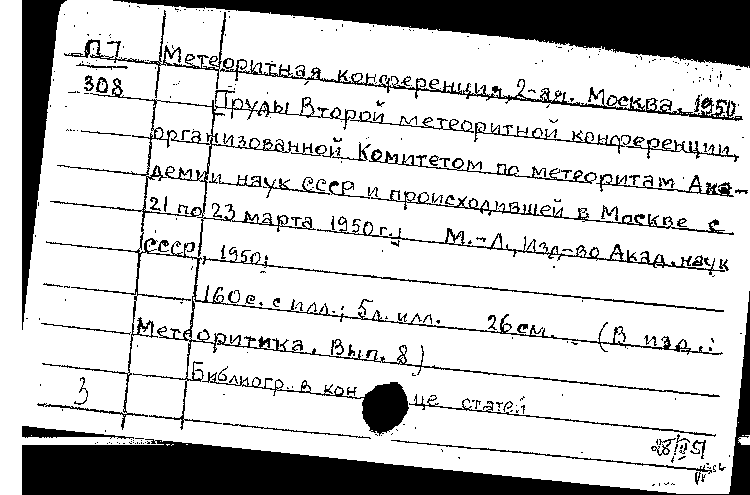 П7 Метеоритная конференция, 2-ая. Москва. 1950
308 Труды Второй метеоритной конференции,
организованной Комитетом по метеоритам Ака-
демии наук СССР и происходившей в Москве с
21 по 23 марта 1950 г.; М.-Л., Изд-во Акад. наук
СССР, 1950;
160 с. с илл.; 5 л. илл. 26 см. (В изд.:
Метеоритика. Вып. 8)
Библиогр. в конце статей
3
28/II 51